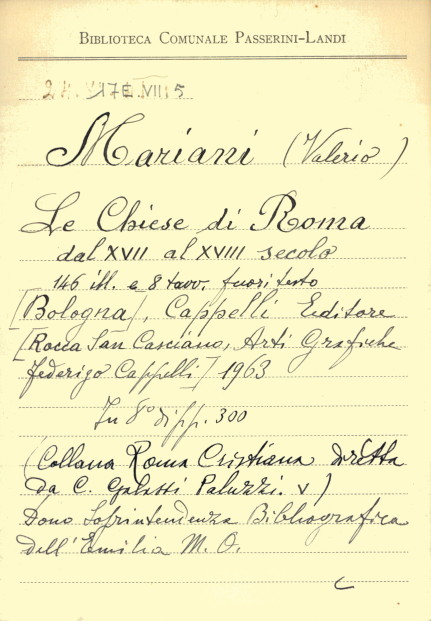 BIBLIOTECA COMUNALE PASSERINI-LANDI
17E VIII 5
Mariani (Valerio)
Le Chiese di Roma
dal XVII al XVIII secolo
146 ill. e 8 tavv. fuori testo
[Bologna], Cappelli Editore
[Rocca San Casciano, Arti Grafiche
Federigo Cappelli] 1963
In 8° di pp. 300
(Collana Roma Cristiana diretta
da C. Galassi Paluzzi. V)
Dono Soprintendenza Bibliografica
dell'Emilia M. O.